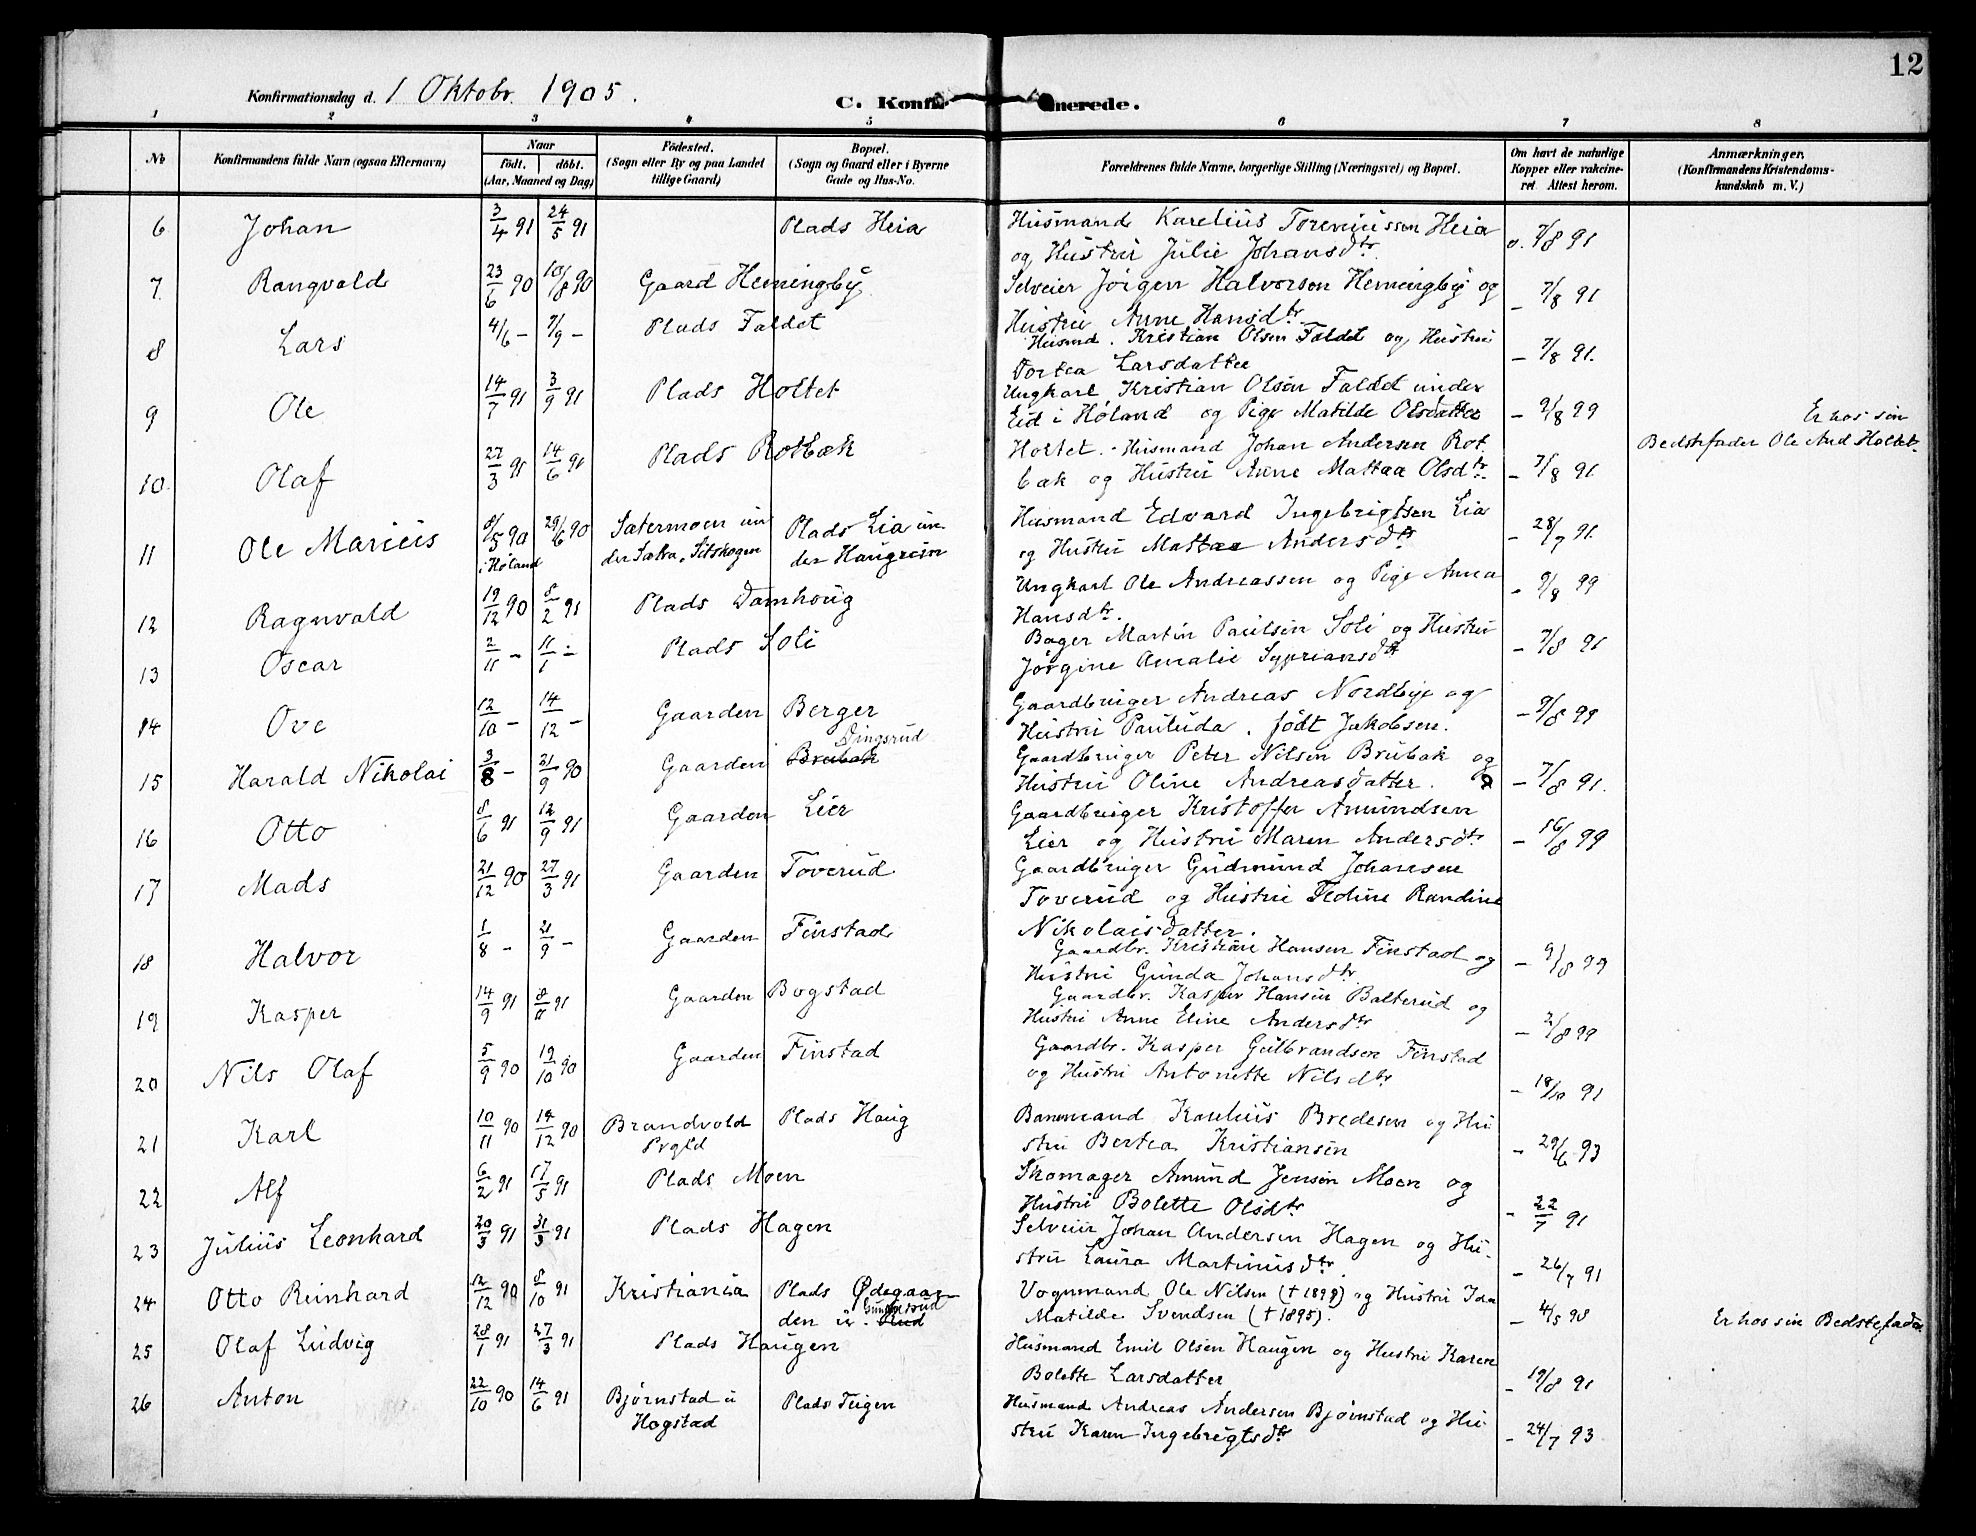 12
Konfirmationsdag d. 1 Oktobr. 1905.
C. Konfir merede.
1 2 3 4 5 6 7 8
No Konfirmandens fulde Navn (ogsaa Efternavn) Naar født. døbt. (Aar, Maaned og Dag) Fødested. (Sogn eller By og paa Landet tillige Gaard) Bopæl. (Sogn og Gaard eller i Byerne Gade og Hus-No. Forældrenes fulde Navne, borgerlige Stilling (Næringsvei) og Bopæl. Om havt de naturlige Kopper eller vakcineret. Attest herom. Anmærkninger. (Konfirmandens Kristendomskundskab m. V.)
6 Johan 3/4 91 24/5 91 Plads Heia Husmand Karelius Toreniussen Heia
og Hustru Julie Johansdtr. v. 7/8 91
7 Rangvald 23/6 90 10/8 90 Gaard Hemingby Selveier Jørgen Halvorsen Hemingby og
Hustru Anne Hansdtr - 7/8 91
8 Lars 4/6 - 7/9 - Plads Faldet Husmd. Kristian Olsen Faldet og Hustru
Dortea Larsdatter - 7/8 91.
9 Ole 14/7 91 3/9 91 Plads Holtet Ungkarl Kristian Olsen Faldet under
Eid i Høland og Pige Matilde Olsdatter - 9/8 99 Er hos sin
Holtet. Bedstefader Ole And. Holtet.
10 Olaf 27/3 91 14/6 91 Plads Rotbæk Husmand Johan Andersen Rot
bæk og Hustru Anne Mattea Olsdtr. - 7/8 91.
11 Ole Marius 8/5 90 29/6 90 Sætermoen un Plads Lia un Husmand Edvard Ingebrigtsen Lia
i Høland der Sæka, Sitskogen der Haugrein og Hustru Mattea Andersdtr - 28/7 91.
12 Ragnvald 19/12 90 8/2 91 Plads Damhoug Ungkarl Ole Andreassen og Pige Anna
Hansdtr. - 9/8 99
13 Oscar 2/11 - 11/1 - Plads Soli Bager Martin Paulsen Soli og Hustru
Jørgine Amalie Sypriansdtr - 7/8 91
14 Ove 12/10 - 14/12 - Gaarden Berger Gaardbruger Andreas Nordbye og
Hustru Pauluda. født Jakobsen. - 9/8 99
Dingsrud
15 Harald Nikolai 3/8 - 21/9 90 Gaarden Brubak Gaardbruger Peter Nilsen Brubak og
Hustru Oline Andreasdatter. - 7/8 91.
16 Otto 8/6 91 12/9 91 Gaarden Lier Gaardbruger Kristoffer Amundsen
Lier og Hustru Maren Andersdtr - 16/8 99
17 Mads 21/12 90 27/3 91 Gaarden Toverud Gaardbruger Gudmund Johansen
Toverud og Hustru Teoline Randine
Nikolaisdatter.
18 Halvor 1/8 - 21/9 - Gaarden Finstad Gaardbr. Kristian Hansen Finstad og
Hustru Gunda Johansdtr. - 9/8 99
19 Kasper 14/9 91 8/11 91 Gaarden Bogstad Gaardbr. Kasper Hansen Balterud og
Hustru Anne Eline Andersdtr - 2/8 99
20 Nils Olaf 5/9 90 19/10 90 Gaarden Finstad Gaardbr. Kasper Gulbrandsen Finstad
og Hustru Antonette Nilsdtr - 18/10 91
21 Karl 10/11 90 14/12 90 Brandvold Plads Haug Banemand Karelius Bredesen og Hu
Prgld stru Bertea Kristiansen - 29/6 93
22 Alf 6/2 91 17/5 91 Plads Moen Skomager Amund Jensen Moen og
Hustru Bolette Olsdtr. - 22/7 91
23 Julius Leonhard 20/3 91 31/3 91 Plads Hagen Selveier Johan Andersen Hagen og Hu-
stru Laura Martinusdtr. - 26/7 91
24 Otto Reinhard 12/12 90 8/10 91 Kristiania Plads Ødegaar- Vognmand Ole Nilsen († 1899) og Hustru Ida
den u. Rud Matilde Svendsen († 1895). - 4/5 98 Er hos sin Bedstefader
25 Olaf Ludvig 28/1 91 27/3 91 Plads Haugen Husmand Emil Olsen Haugen og Hustru Karen
Bolette Larsdatter - 19/8 91
26 Anton 22/10 90 14/6 91 Bjørnstad u Plads Teigen Husmand Andreas Andersen Bjørnstad og Hu-
Hogstad stru Karen Ingebrigtsdtr - 24/7 93